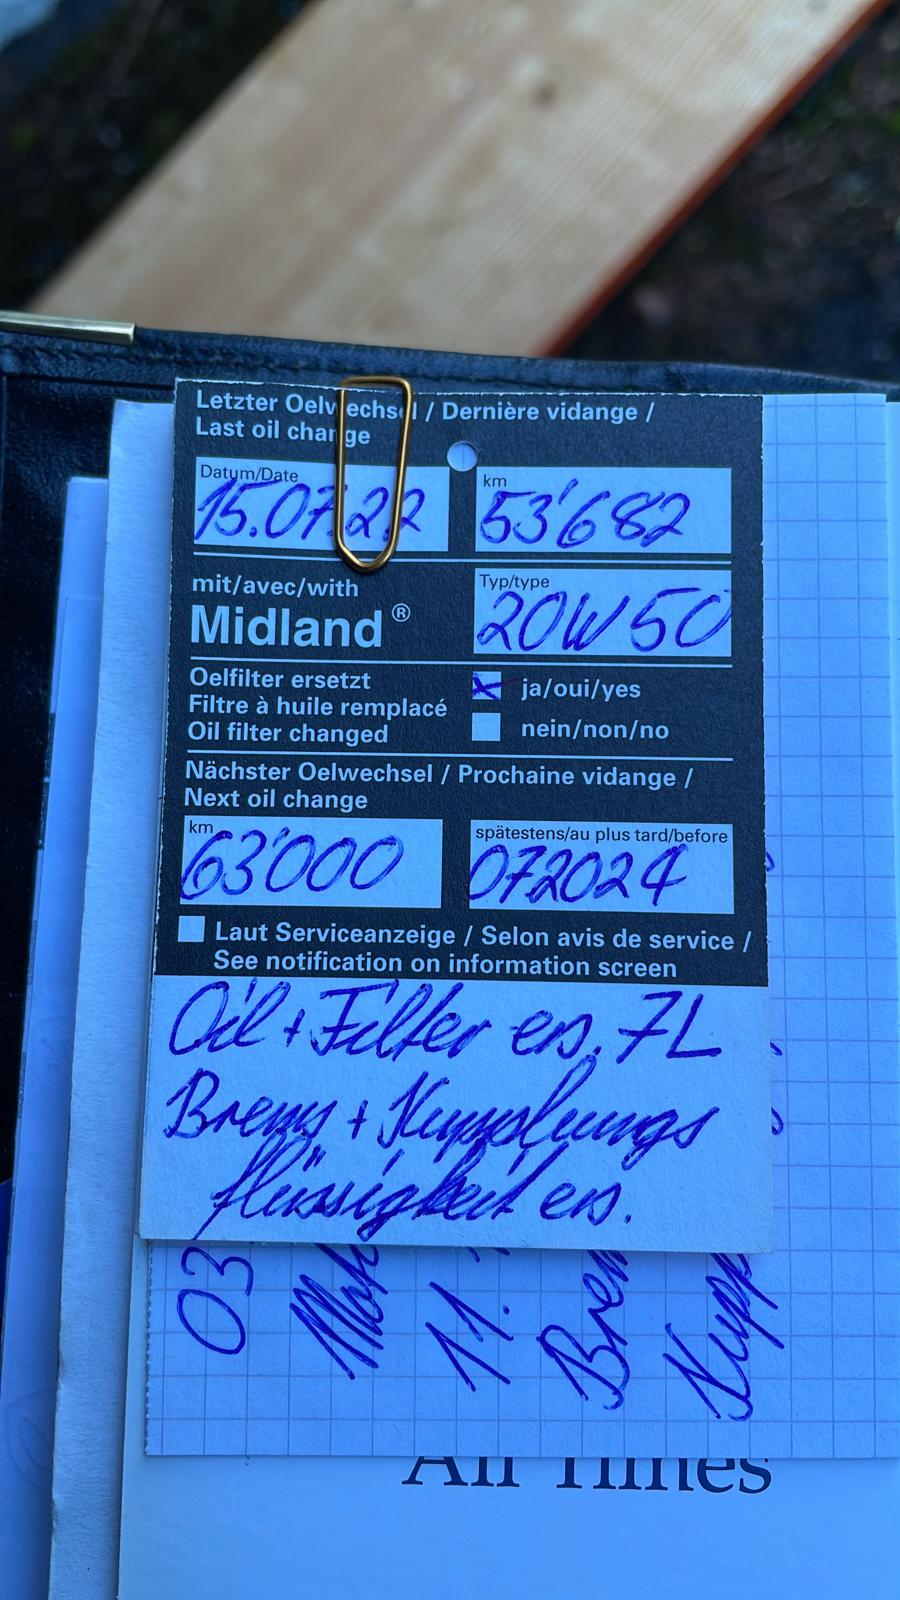 Letzter Oelwechsel / Dernière vidange /
Last oil change
Datum/Date
15.07.22
km
53'682
mit/avec/with
Midland®
Typ/type
20W50
Oelfilter ersetzt
Filtre à huile remplacé
Oil filter changed
ja/oui/yes
nein/non/no
Nächster Oelwechsel / Prochaine vidange /
Next oil change
km
63'000
spätestens/au plus tard/before
072024
Laut Serviceanzeige / Selon avis de service /
See notification on information screen
Oil + Filter ers. 7L
Brems + Kupplungs
flüssigkeit ers.
03
Mot
11.
Brem
Kupp
All Times